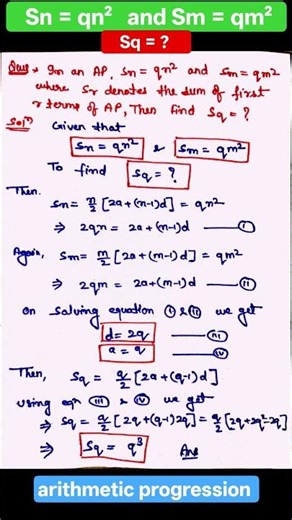 Sn = qn² and Sm = qm²
Sq = ?
Que → In an AP, Sn = qn² and Sm = qm²
where Sr denotes the sum of first
r terms of AP, Then find Sq = ?
Solⁿ Given that
Sn = qn² & Sm = qm²
To find Sq = ?
Then,
Sn = n/2 [2a + (n-1)d] = qn²
⇒ 2qn = 2a + (n-1)d — (I)
Again, Sm = m/2 [2a + (m-1)d] = qm²
⇒ 2qm = 2a + (m-1)d — (II)
On solving equation (I) & (II) we get
d = 2q — (III)
a = q — (IV)
Then, Sq = q/2 [2a + (q-1)d]
using eqn (III) & (IV) we get
⇒ Sq = q/2 [2q + (q-1)2q] = q/2 [2q + 2q² - 2q]
⇒ Sq = q³ Ans
arithmetic progression